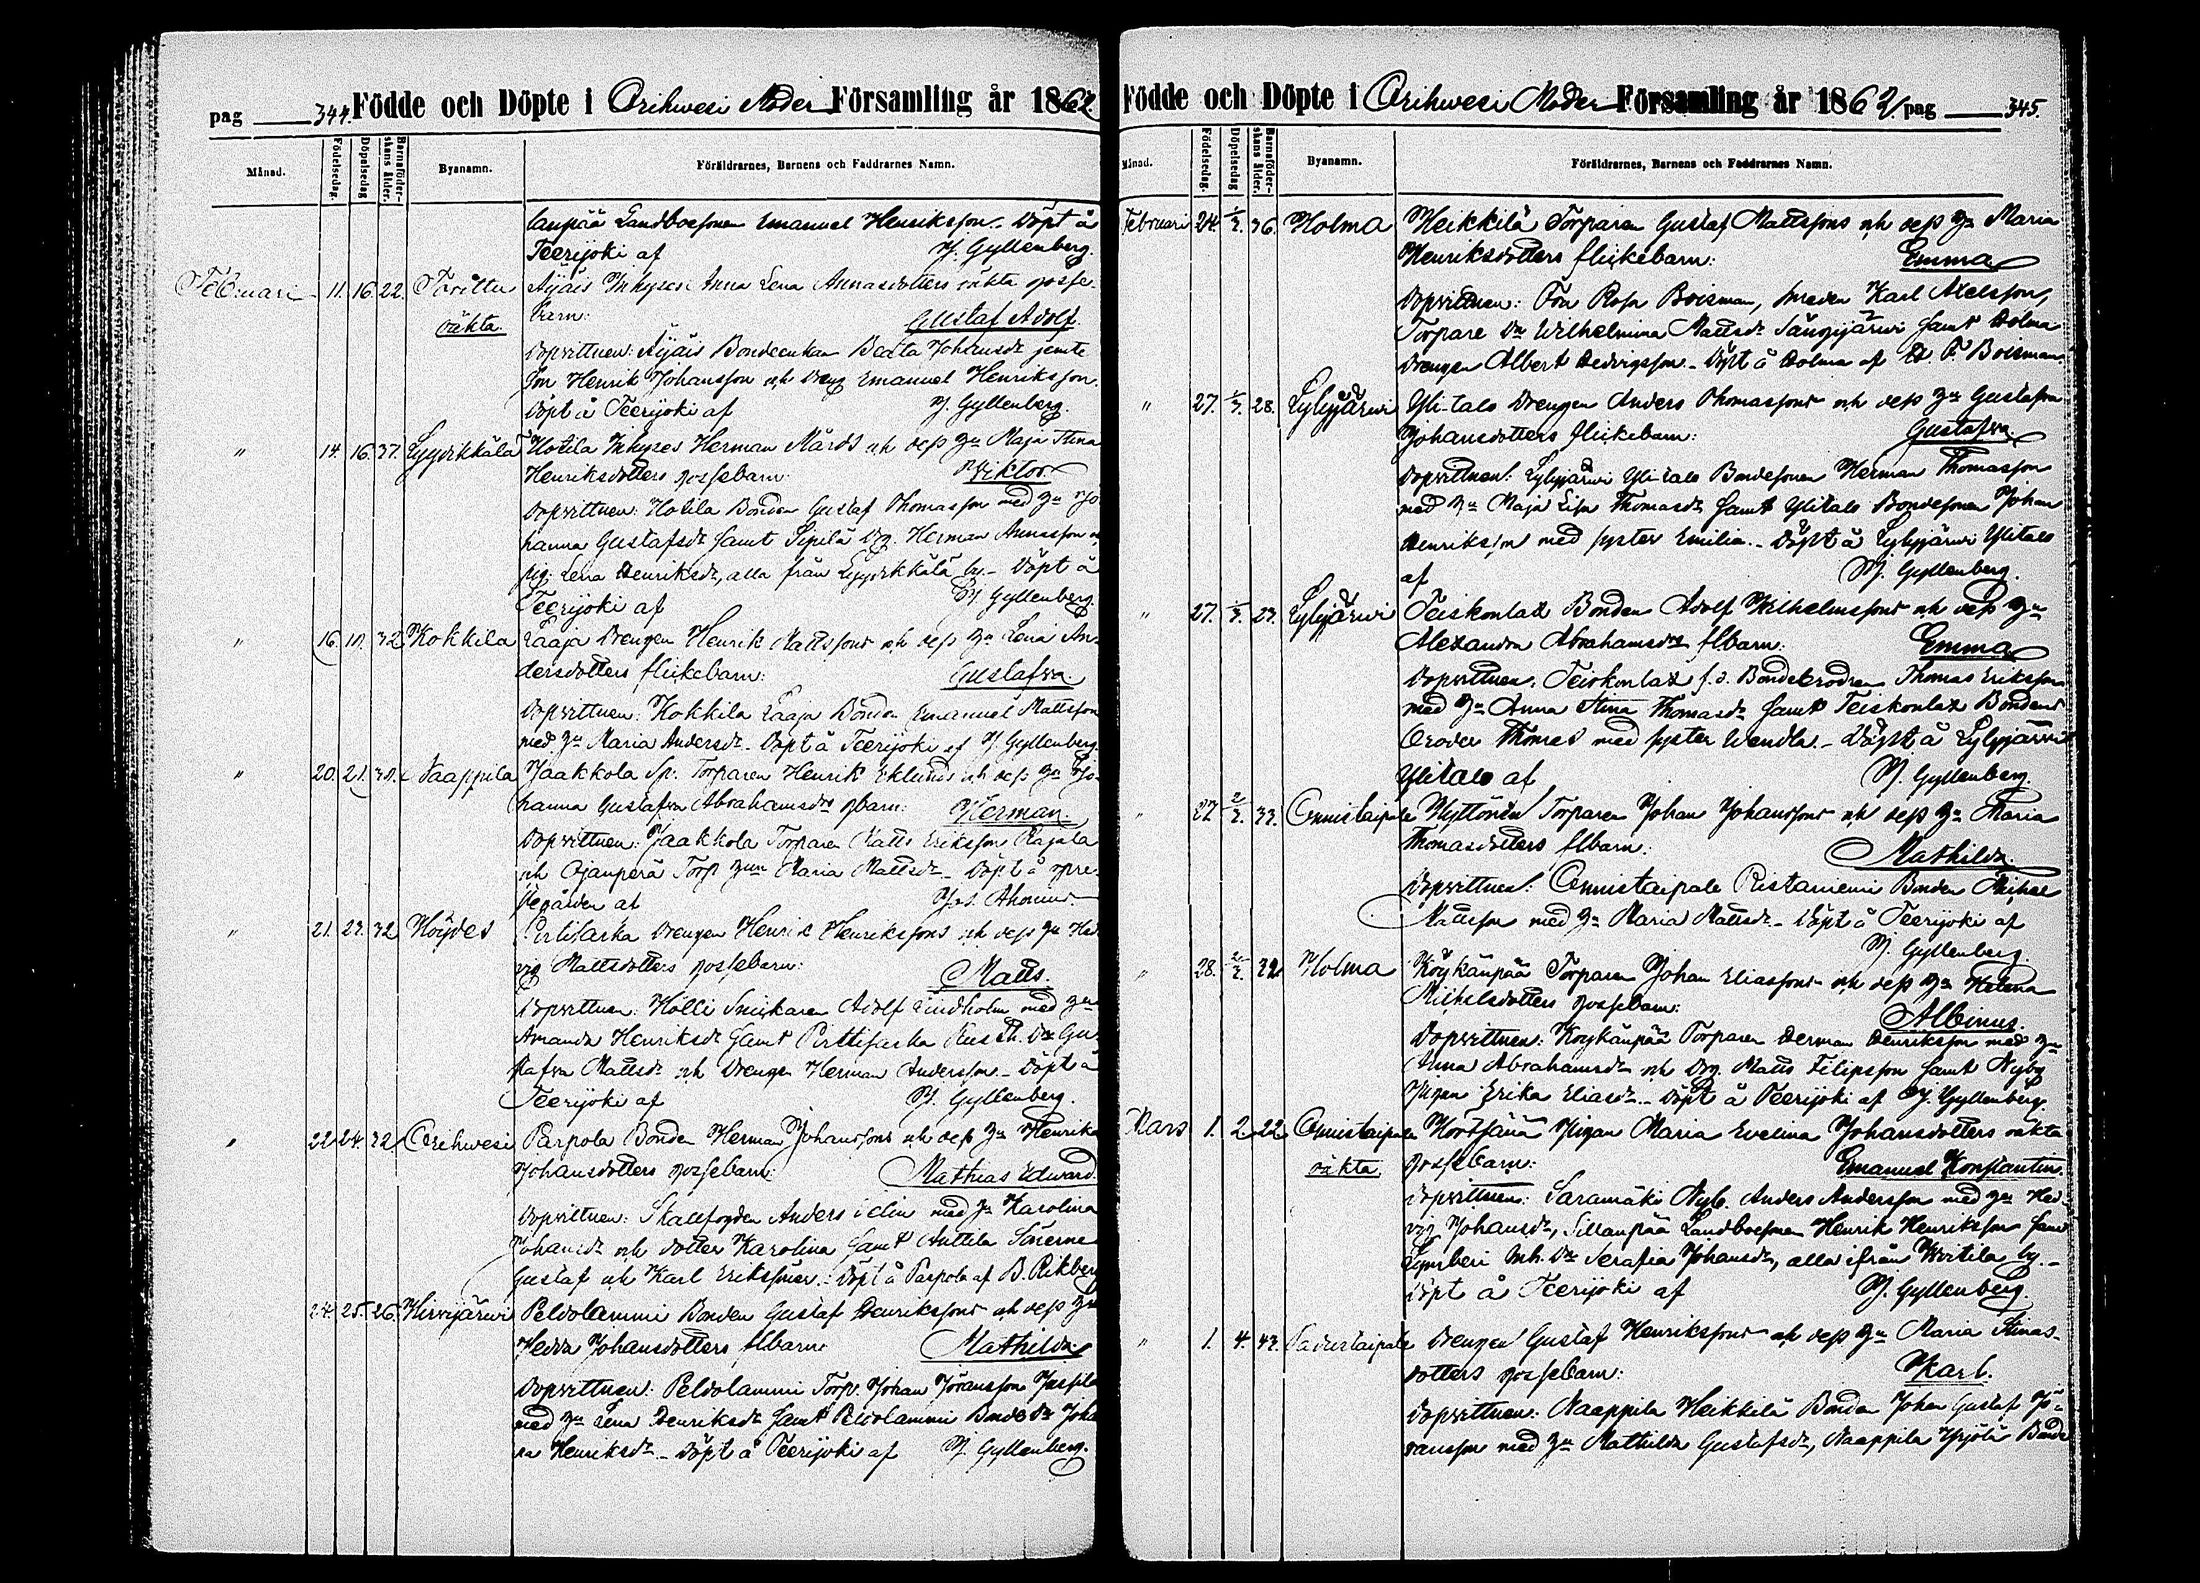 pag 344. Födde och Döpte i Orihwesi Moder Församling år 1862
Månad. Födelsedag. Döpelsedag Barnaföderskans ålder. Byanamn. Föräldrarnes, Barnens och Faddrarnes Namn.
Landboesonen Emanuel Henriksson. Döpt å
Teerijoki af M. Gyllenberg.
Februari 11. 16. 22. Äijäis Inhyses Anna Lena Annasdotters oäkta gosse-
oäkta barn: Gustaf Adolf.
Dopvittnen: Äijäis Bondeenkan Beata Johansdr jemte
Son Henrik Johansson och Dreng Emanuel Henriksson.
Döpt å Teerijoki af M. Gyllenberg.
" 14. 16. 37. Lyydikkälä Hotila Inhyses Herman Mårds och dess Hu Maja Stina
Henriksdotters gossebarn: Viktor
Dopvittnen: Hotila Bonden Gustaf Thomasson med Hu Jo
hanna Gustafsdr samt Sipilä Drg. Herman Annasson o
pig. Lena Henriksdr, alla från Lyydikkälä by.- Döpt å
Teerijoki af M. Gyllenberg.
" 16. 32 Kokkila Laaja Drengen Henrik Mattssons och dess Hu Lena An-
dersdotters flickebarn: Gustafva.
Dopvittnen: Kokkila Laaja Bonden Emanuel Mattsson
med Hu Maria Andersdr. Döpt å Teerijoki af M. Gyllenberg.
" 20. 21. Naappila Jaakkola Sp. Torparen Henrik Eklunds och dess Hu Jo-
hanna Gustafva Abrahamsdrs gbarn: Herman.
Dopvittnen: Jaakkola Torparen Matts Eriksson Rajala
och Ojanperä Torp Hun Maria Mattsdr. Döpt å
af Jos.
" 21. 23. 32 Höydes Pirttisarka Drengen Henrik Henrikssons och dess Hu Hed
vig Mattsdotters gossebarn: Matts.
Dopvittnen: Hölli Snickaren Adolf Lindholm med Hu
Amanda Henriksdr samt Pirttisarka Dr Gu
stafva Mattsdr och Drengen Herman Andersson. Döpt å
Teerijoki af M. Gyllenberg.
" 22 24. 32. Orihwesi Parpola Bonden Herman Johanssons och dess Hu Henrika
Johansdotters gossebarn: Mathias Edward.
Dopvittnen: Skallfogden Anders med Hu Karolina
Johansdr och dotter Karolina samt Anttila Sönerne
Gustaf och Karl Erikssöner. Döpt å Parpola af B. Rikberg
24. 25. 26. Hirvijärwi Peldolammi Bonden Gustaf Henrikssons och dess Hu
Hedda Johansdotters flbarn: Mathilda
Dopvittnen: Peldolammi Torp. Johan Jöransson
med Hu Lena Henriksdr samt Peldolammi Bonde Dr Joha
na Henriksdr. Döpt å Teerijoki af M. Gyllenberg.
Födde och Döpte i Orihwesi Moder Församling år 1862 pag 345.
Månad. Födelsedag. Döpelsedag Barnaföderskans ålder. Byanamn. Föräldrarnes, Barnens och Faddrarnes Namn.
Februari 24. 1/3. 36. Holma Heikkilä Torparen Gustaf Mattssons och dess Hu Maria
Henriksdotters flickebarn: Emma
Dopvittnen: Frn Rosa Boisman, Smeden Karl Axelsson,
Torpare Dr Wilhelmina Mattsdr Sängijärwi samt Holma
Drengen Albert Hedvigsson. Döpt å Holma af F Boisman.
" 27. 1/3. 28. Lylyjärwi Yli-talo Drengen Anders Thomassons och dess Hu Gustafva
Johansdotters flickebarn: Gustafva.
Dopvittnen: Lylyjärwi Yli-talo Bondesonen Herman Thomasson
med Hu Maja Lisa Thomasdr samt Ylitalo Bondesonen Johan
Henriksson med syster Emilia. Döpt å Lylyjärwi Ylitalo
af M. Gyllenberg.
" 27. 1/3. 23. Lylyjärwi Teiskonlax Bonden Adolf Wilhelmssons och dess Hu
Alexandra Abrahamsdrs flbarn: Emma
Dopvittnen: Teiskonlax f.d. Bondebrodren Thomas Eriksson
med Hu Anna Stina Thomasdr samt Teiskonlax Bondens
broder Thomas med syster Wendla. Döpt å Lylyjärwi
Ylitalo af M. Gyllenberg.
" 27 2/3. 33. Onnistaipale Torparen Johan Johanssons och dess Hu Maria
Thomasdotters flbarn: Mathilda.
Dopvittnen: Onnistaipale Ristaniemi Bonden Mickel
Mattsson med Hu Maria Mattsdr. Döpt å Teerijoki af
M. Gyllenberg.
" 28. 2/3. 32. Holma Köykänpää Torparen Johan Eliassons och dess Hu Helena
Mickelsdotters gossebarn: Albinus.
Dopvittnen: Köykänpää Torparen Herman Henriksson med Hu
Anna Abrahamsdr och Drg. Matts Filipsson samt Nyby
Pigan Erika Eliasdr. Döpt å Teerijoki af M. Gyllenberg.
Mars 1. 2 22 Onnistaipale Pigan Maria Evelina Johansdotters oäkta
oäkta. gossebarn: Emanuel Konstantin.
Dopvittnen: Saramäki Nyb. Anders Andersson med Hu Hed-
vig Johansdr, Sillanpää Landboesonen Henrik Henriksson samt
Inh. Dr Serafia Johansdr, alla ifrån by.-
Döpt å Teerijoki af M. Gyllenberg.
" 1. 4. 43. Padustaipale Drengen Gustaf Henrikssons och dess Hu Maria Stinas-
dotters gossebarn: Karl.
Dopvittnen: Naappila Heikkilä Bonden Johan Gustaf Jö-
ransson med Hu Mathilda Gustafsdr, Naappila Yrjölä Bonde